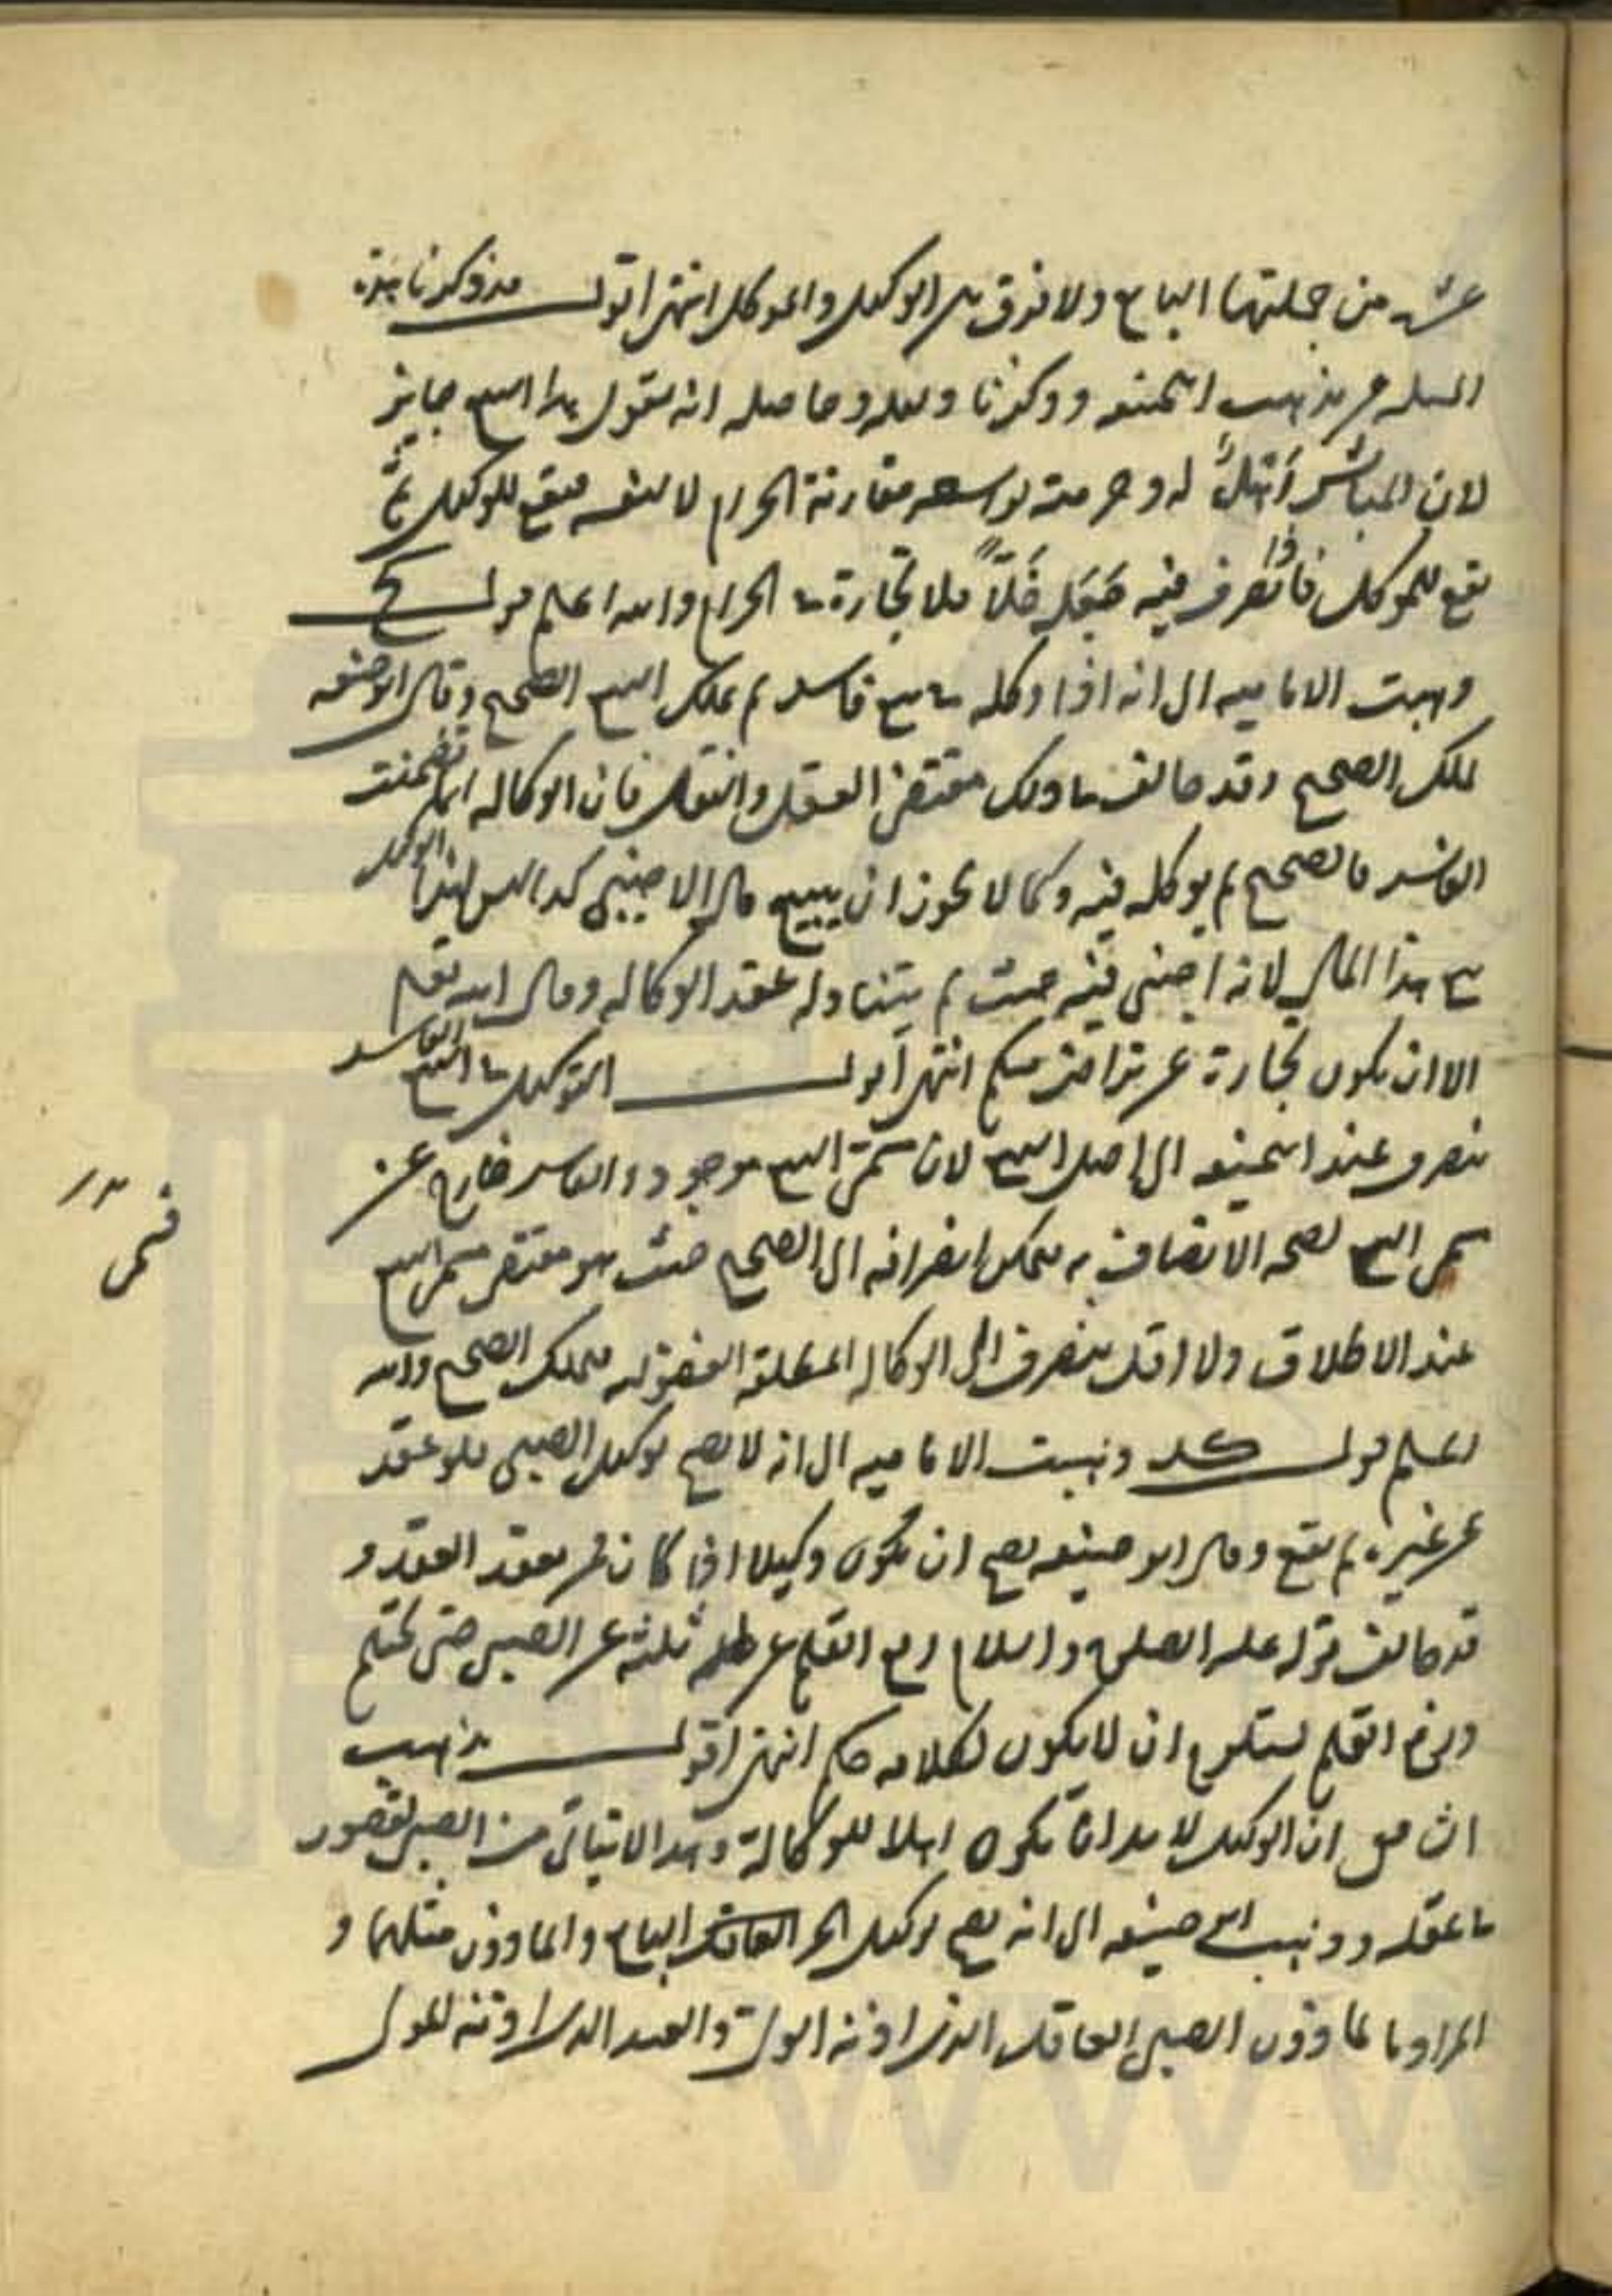 عشرة من جملتها البايع ولا فرق بين الوكيل والموكل انتهى اقول قد ذكرنا هذه
المسله من مذهب ابي حنيفه وذكرنا دليله وحاصله انه يقول هذا البيع جايز
لان المباشر اَهْلٌ له وحرمته بواسطه مقارنة الحرام لا لنفسه فيقع للوكيل ثمَّ
يقع للموكل فاذا تصرف فيه فيجعله خَلّاً فلا تجارة في الحرام والله اعلم قوله ح
ذهبت الاماميه الى انه اذا وكله في بيع فاسد لم يملك البيع الصحيح وقال ابو حنيفه
يملك الصحيح وقد خالف في ذلك مقتضى العقل والنقل فان الوكاله انما تضمنت
الفاسد فالصحيح لم يوكله فيه وكما لا يجوز ان يبيع مال الاجنبي كذا ليس لهذا الوكيل
بيع هذا المال لانه اجنبي فيه حيث لم يتناوله عقد الوكاله وقال الله تعالى
الا ان يكون تجارة عن تراض منكم انتهى اقول التوكيل في البيع الفاسد
ينصرف عند ابي حنيفه الى اصل البيع لان مسمى البيع موجود والفاسد خارج عن
مسمى البيع لصحه الاتصاف به فيمكن انصرافه الى الصحيح حيث هو مقتضى مسمى البيع
عند الاطلاق ولا اقل ينصرف الى الوكاله المطلقة الفضوليه فيملك الصحيح والله
اعلم قوله كد ذهبت الاماميه الى انه لا يصح توكيل الصبي فلو عقد
عن غيره لم يقع وقال ابو حنيفه يصح ان يكون وكيلا اذا كان يعقد العقد و
قد خالف قوله عليه الصلوة والسلام رفع القلم عن ثلثه عن الصبي حتى يحتلم
ورفع القلم يستلزم ان لا يكون لكلامه حكم انتهى اقول مذهب
الشافعي ان الوكيل لا بد ان يكون اهلا للوكالة وهذا لا يتاتى من الصبي لقصور
في عقله وذهب ابي حنيفه الى انه يصح توكيل الحر العاقل البالغ والماذون مثلهما و
المراد بالماذون الصبي العاقل الذى اذنه الولي والعبد الذى اذنه المولى